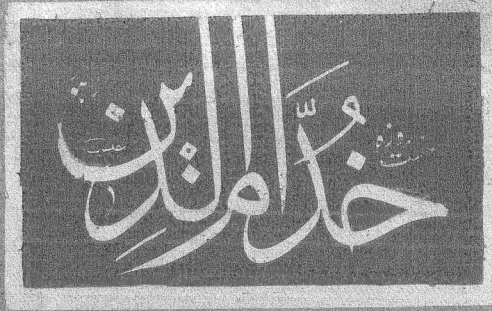 ہفت روزہ
خُدّام الدین